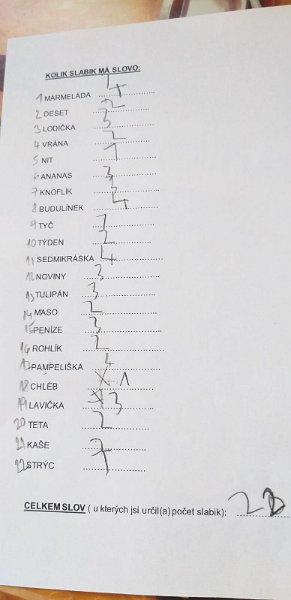 KOLIK SLABIK MÁ SLOVO:
1 MARMELÁDA 4
2 DESET 2
3 LODIČKA 3
4 VRÁNA 2
5 NIT 1
6 ANANAS 3
7 KNOFLÍK 3
8 BUDULÍNEK 4
9 TYČ 1
10 TÝDEN 2
11 SEDMIKRÁSKA 4
12 NOVINY 3
13 TULIPÁN 3
14 MASO 2
15 PENÍZE 3
16 ROHLÍK 2
17 PAMPELIŠKA 4
18 CHLÉB 1
19 LAVIČKA 3
20 TETA 2
21 KAŠE 2
22 STRÝC 1
CELKEM SLOV ( u kterých jsi určil(a) počet slabik):